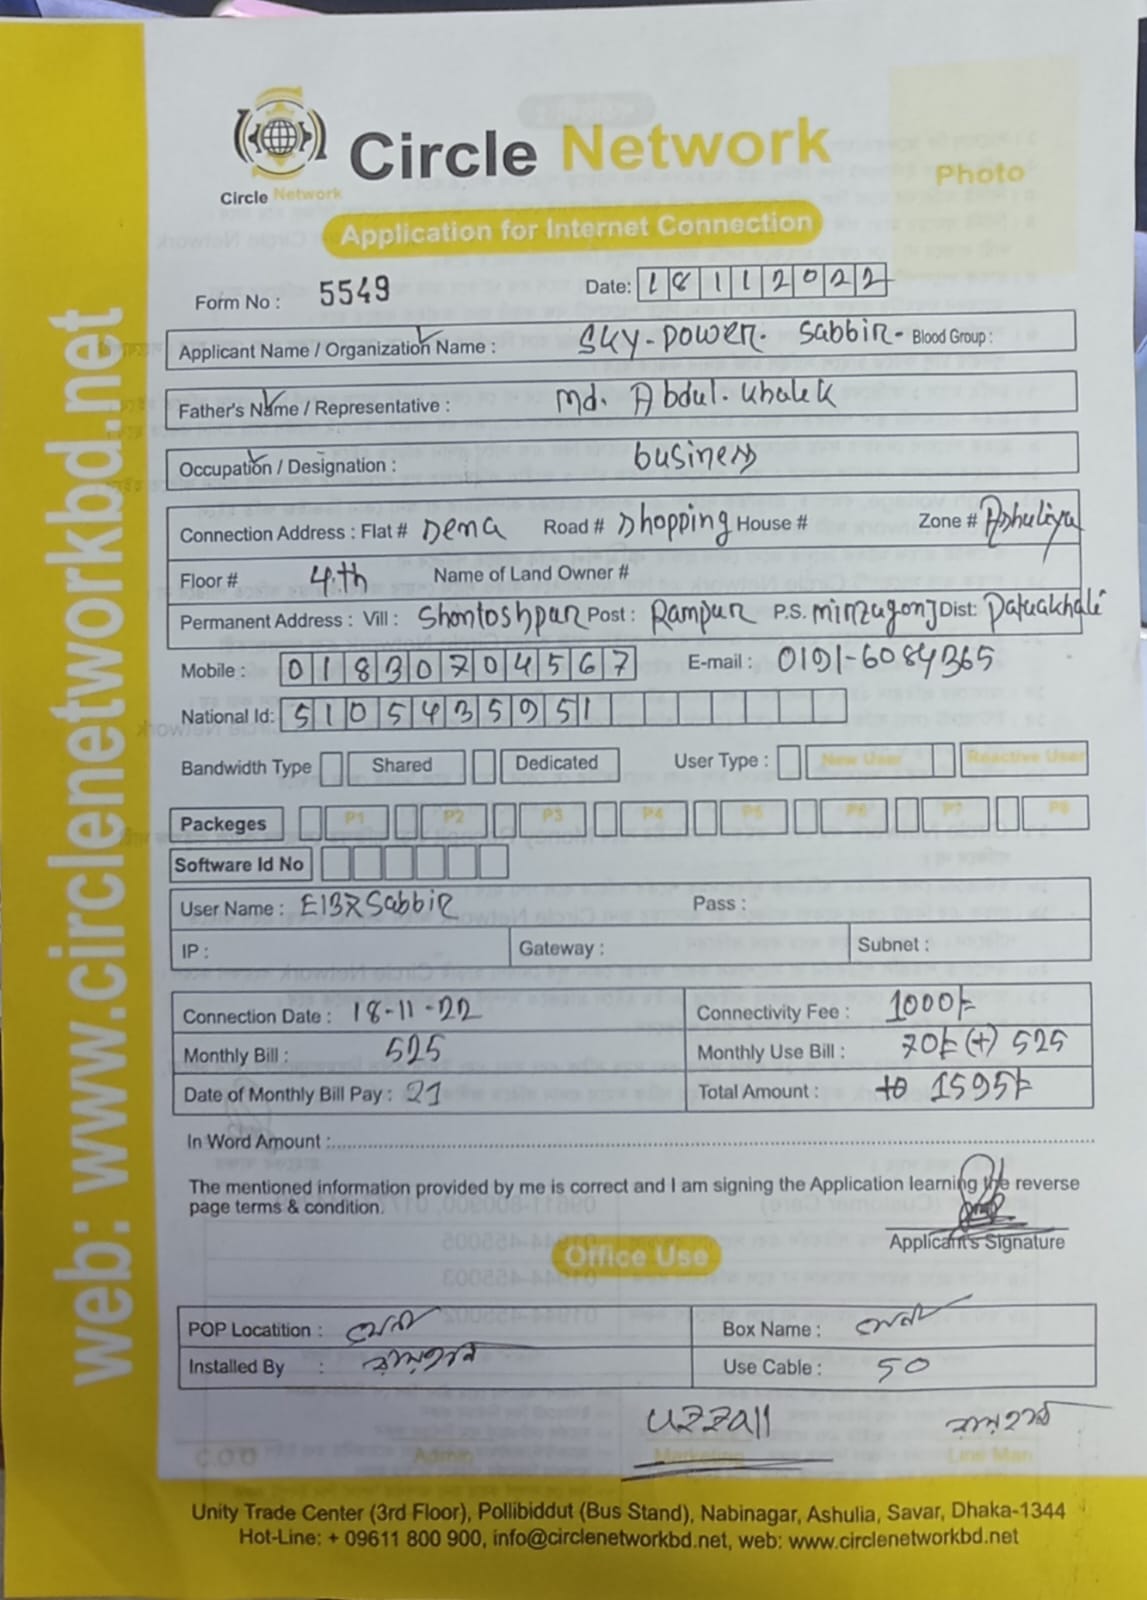 Circle Network
Circle Network
Photo
Application for Internet Connection
Form No : 5549 Date: 18112022
Applicant Name / Organization Name : Sky-power. Sabbir- Blood Group :
Father's Name / Representative : Md. Abdul. Khalek
Occupation / Designation : business
Connection Address : Flat # Dena Road # Shopping House # Zone # Ashuliya
Floor # 4.th Name of Land Owner #
Permanent Address : Vill : Shontoshpur Post : Rampur P.S. mirzugonj Dist: Patuakhali
Mobile : 01830704567 E-mail : 0191-6084365
National Id: 5105435951
Bandwidth Type Shared Dedicated User Type : New User Reactive User
Packeges P1 P2 P3 P4 P5 P6 P7 P8
Software Id No
User Name : E137Sabbir Pass :
IP : Gateway : Subnet :
Connection Date : 18-11-22 Connectivity Fee : 1000/-
Monthly Bill : 525 Monthly Use Bill : 70/- (+) 525
Date of Monthly Bill Pay : 21 Total Amount : 1595/-
In Word Amount :
The mentioned information provided by me is correct and I am signing the Application learning the reverse
page terms & condition.
Applicant's Signature
Office Use
POP Locatition : Box Name :
Installed By : Use Cable : 50
Uzzall
C.O.O Admin Marketing Line Man
Unity Trade Center (3rd Floor), Pollibiddut (Bus Stand), Nabinagar, Ashulia, Savar, Dhaka-1344
Hot-Line: + 09611 800 900, info@circlenetworkbd.net, web: www.circlenetworkbd.net
web: www.circlenetworkbd.net